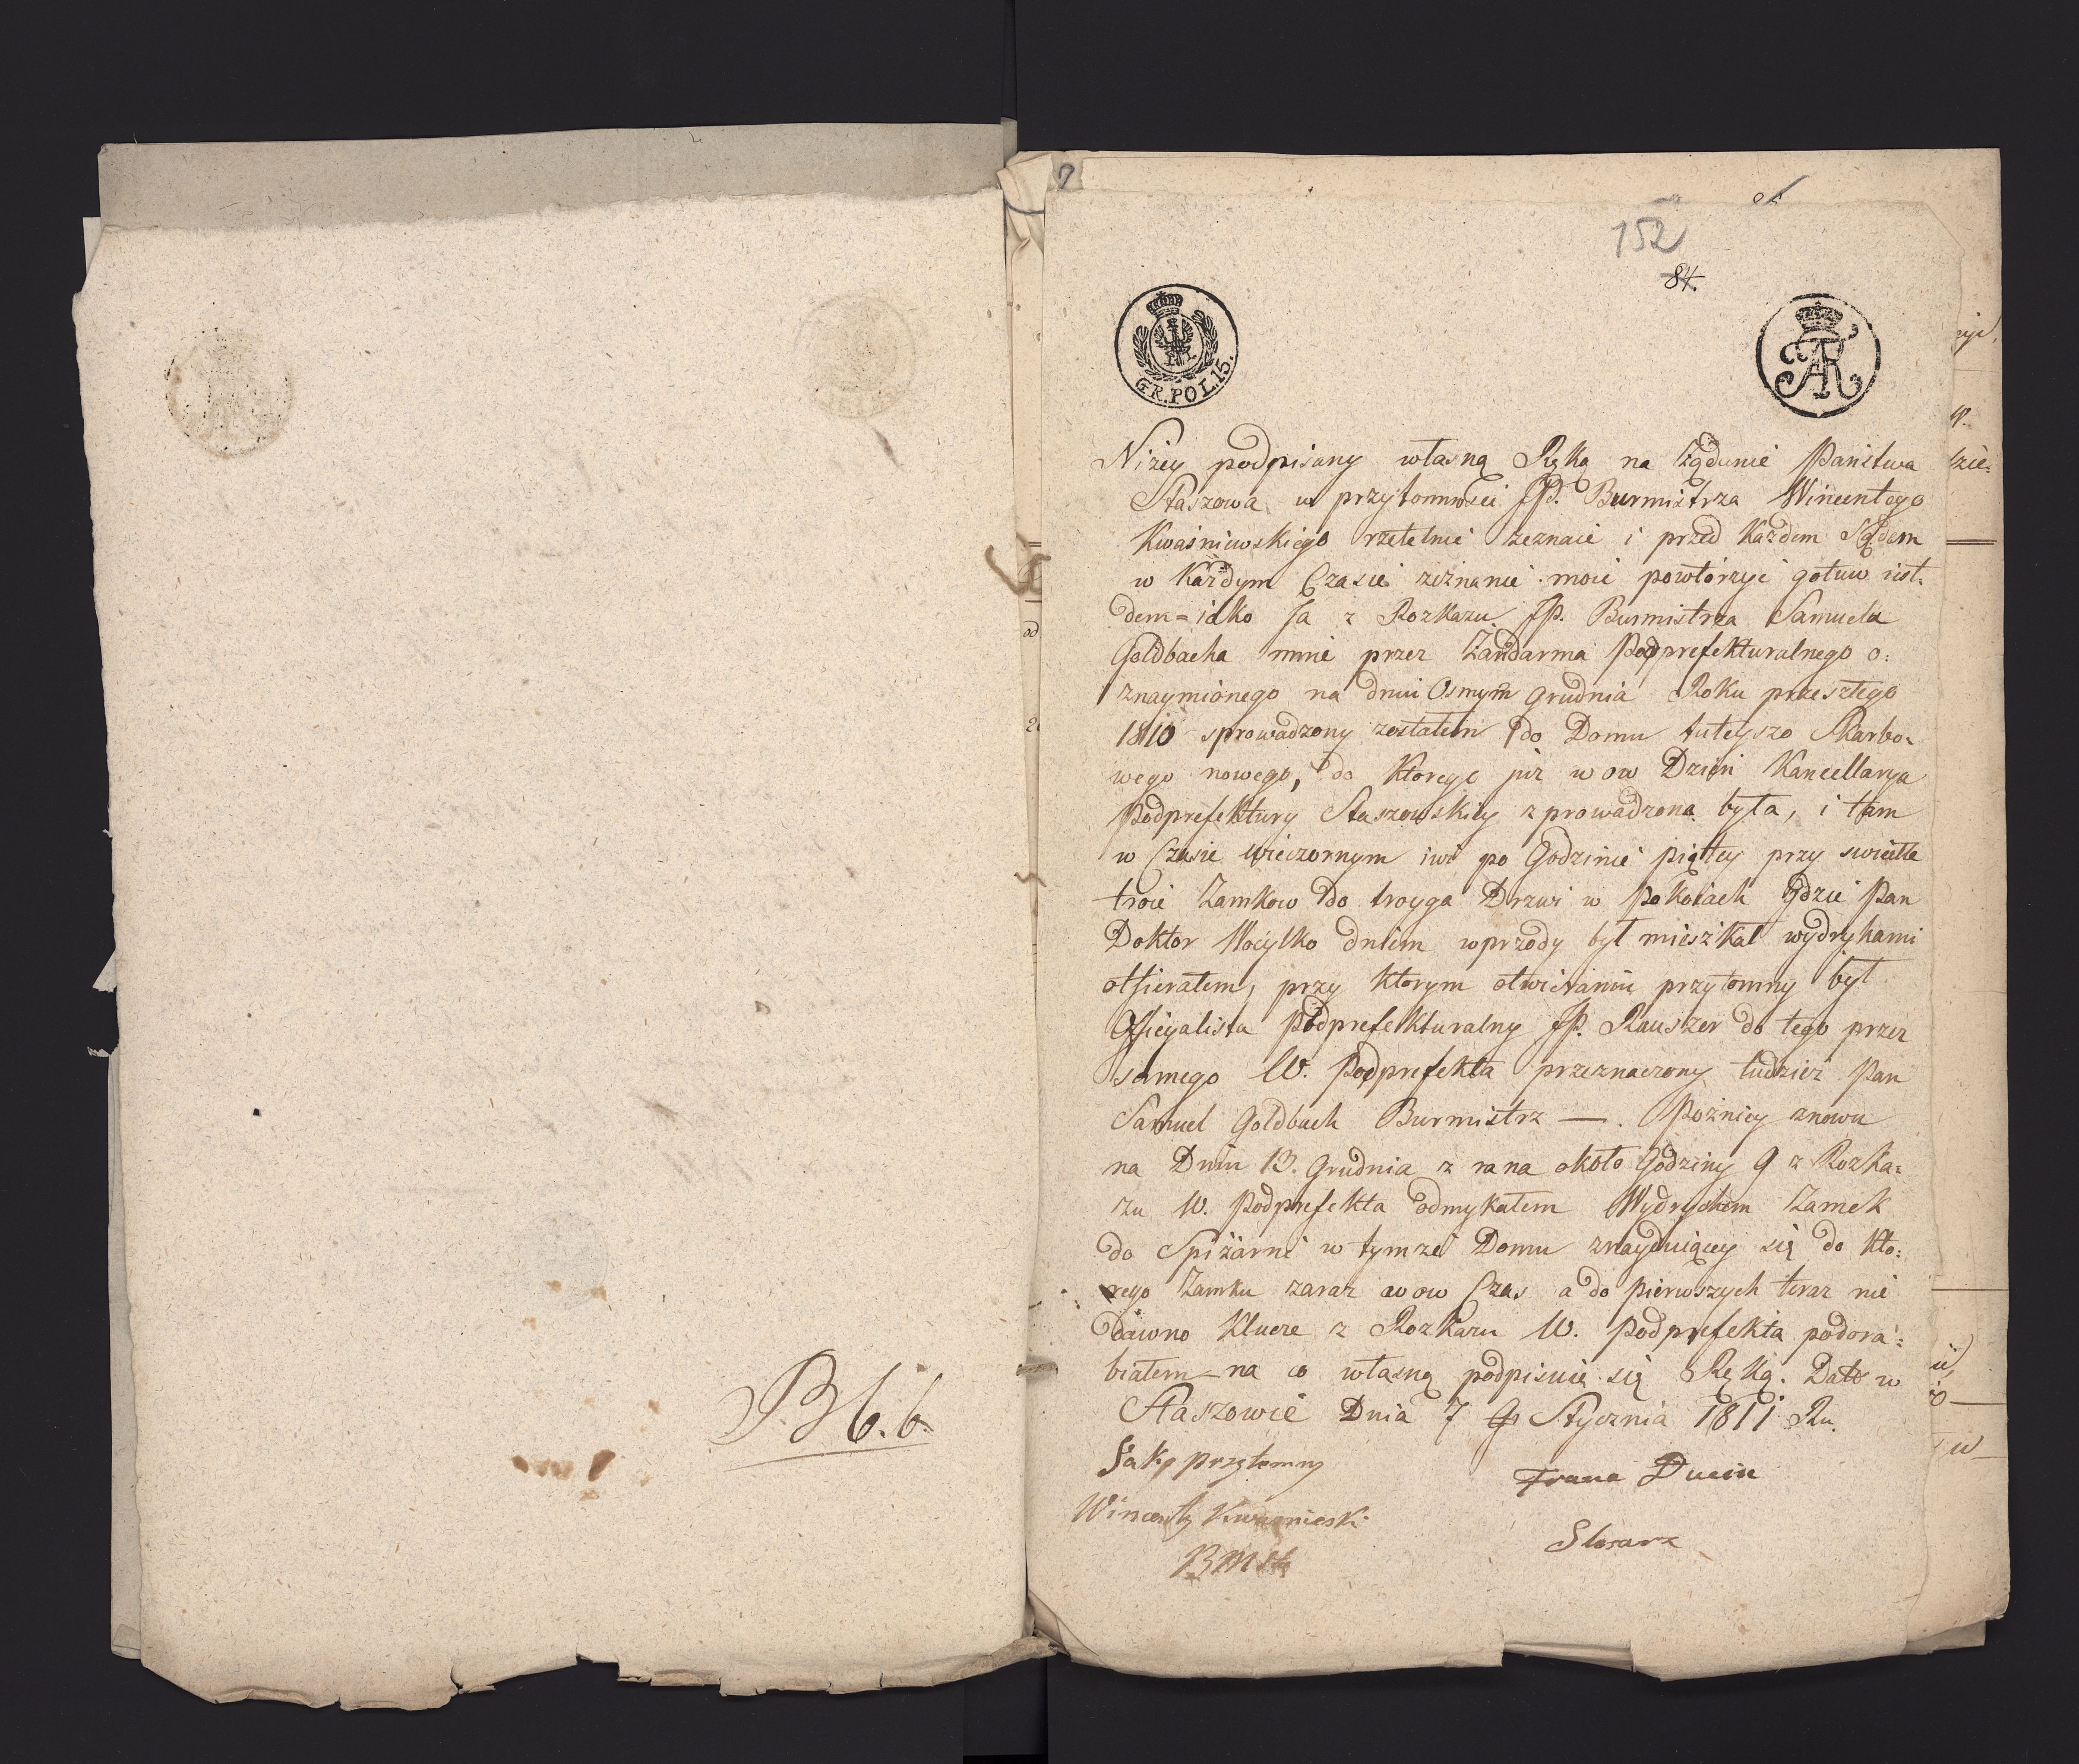 B b. b.
152
84.
GR. POL. 15.
AR
Niżey podpisany własną Ręką na Żądanie Państwa
Staszowa w przytomności JP. Burmistrza Wincentego
Kwaśniewskiego rzetelnie zeznaie i przed Każdem Sądem
w Każdym Czasie zeznanie moie powtórzyć gotuw iest.
dem = iako Ja z Rozkazu JP. Burmistrza Samuela
Goldbacha mnie przez Żandarma Podprefekturalnego o:
znaymionego na dniu Osmym grudnia Roku przeszłego
1810 sprowadzony zostałem do Domu tuteyszo Skarbo:
wego nowego, do Ktorego już w ow Dzień Kancellarya
Podprefektury Staszowskiey zprowadzona była, i tam
w Czasie wieczornym iuż po Godzinie piątey przy swietle
troie Zamkow do troyga Drzwi w Pokoiach Gdzie Pan
Doktor dniem wprzody był mieszkał wydrychami
otfierałem, przy Ktorym otwieraniu przytomny był
Officyalista Podprefekturalny JP. Rauszer do tego przez
samego W. Podprefekta przeznaczony tudzież Pan
Samuel Goldbach Burmistrz —. Poźniey znowu
na Dniu 13. Grudnia z rana około Godziny 9 z Rozka:
zu W. Podprefekta odmykałem Wydrychem Zamek
do Spiżarni w tymże Domu znayduiącey się do Kto:
rego Zamku zaraz w ow Czas a do pierwszych teraz nie
dawno Klucze z Rozkazu W. Podprefekta podora:
białem — na co własną podpisuię się Ręką. Dato w
Staszowie Dnia 7 Stycznia 1811 Ru.
Jako przytomny
Franc Ducin
Wincenty Kwasnieski
Slosarz
BMst